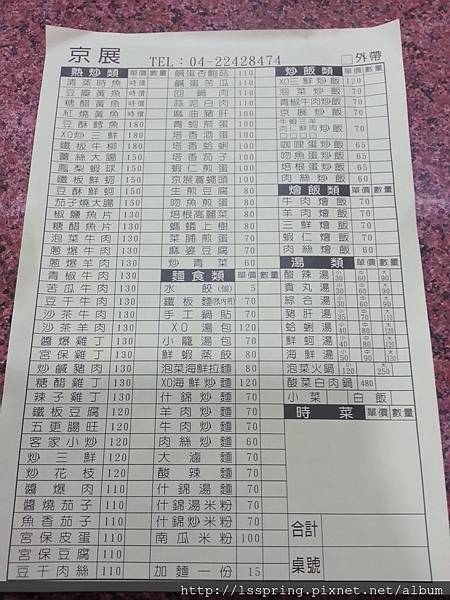 京展
TEL：04-22428474
□外帶
熱炒類 單價 數量
清蒸時魚 時價
豆瓣黃魚 時價
糖醋黃魚 時價
紅燒黃魚 時價
豆酥鱈魚 180
XO炒三鮮 180
鐵板牛柳 180
薑絲大腸 150
鳳梨蝦球 150
鐵板鮮蚵 150
豆酥鮮蚵 150
茄子燒大腸 150
椒鹽魚片 130
糖醋魚片 130
泡菜牛肉 130
蔥爆牛肉 130
蔥爆羊肉 130
青椒牛肉 130
苦瓜牛肉 130
豆干牛肉 130
沙茶牛肉 130
沙茶羊肉 130
醬爆雞丁 130
宮保雞丁 130
炒鹹豬肉 130
糖醋雞丁 130
辣子雞丁 130
鐵板豆腐 120
五更腸旺 120
客家小炒 120
炒三鮮 120
炒花枝 120
醬爆肉 110
醬燒茄子 110
魚香茄子 110
宮保皮蛋 110
宮保豆腐 110
豆干肉絲 110
鹹蛋杏鮑菇 110
鹹蛋苦瓜 110
回鍋肉 110
蒜泥白肉 110
麻油豬肝 110
青蚵煎蛋 110
塔香酒蛋 100
塔香蛤蜊 100
塔香茄子 100
蝦仁煎蛋 100
京展蒼蠅頭 100
生煎豆腐 80
魩魚煎蛋 80
培根高麗菜 80
螞蟻上樹 80
菜脯煎蛋 70
麻婆豆腐 70
炒青菜 60
麵食類 單價 數量
水餃(個) 5
鐵板麵(限內用) 70
手工鍋貼 70
XO湯包 120
小籠湯包 70
鮮蝦蒸餃 80
泡菜海鮮拉麵 80
XO海鮮炒麵 120
什錦炒麵 70
羊肉炒麵 70
牛肉炒麵 70
肉絲炒麵 60
大滷麵 70
酸辣麵 70
什錦湯麵 70
什錦湯米粉 70
什錦炒米粉 70
南瓜米粉 100
加麵一份 15
炒飯類 單價 數量
XO三鮮炒飯 120
泡菜炒飯 70
青椒牛肉炒飯 70
京展炒飯 70
咖哩蛋炒飯 65
魩魚蛋炒飯 65
鐵板炒飯 65
肉絲炒飯 60
燴飯類 單價 數量
牛肉燴飯 70
羊肉燴飯 70
三鮮燴飯 70
蝦仁燴飯 70
肉絲燴飯 60
湯類 單價 數量
酸辣湯
貢丸湯
綜合湯
豬肝湯
蛤蜊湯
鮮蚵湯
海鮮湯
泡菜火鍋
酸菜白肉鍋 480
小菜 白飯
時菜 單價 數量
合計
桌號
http://lsspring.pixnet.net/album